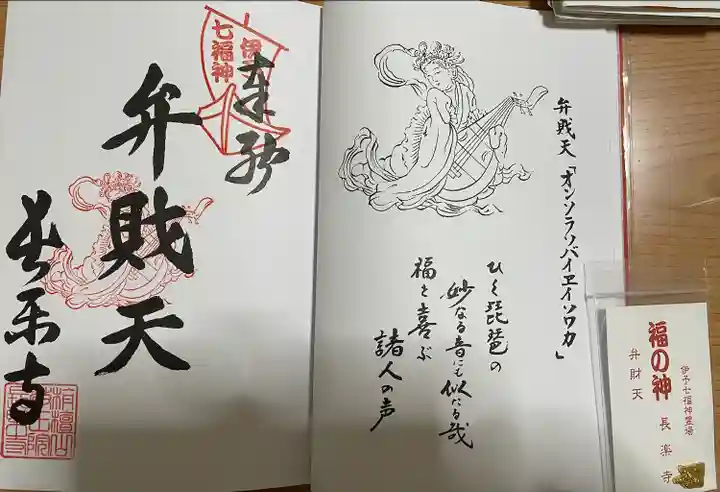 伊
七福神
奉納
弁財天
長楽寺
弁財天「オンソラソバイヱイソワカ」
ひく琵琶の
妙なる音にも似たる哉
福を喜ぶ
諸人の声
福の神
伊予七福神霊場
弁財天
長楽寺